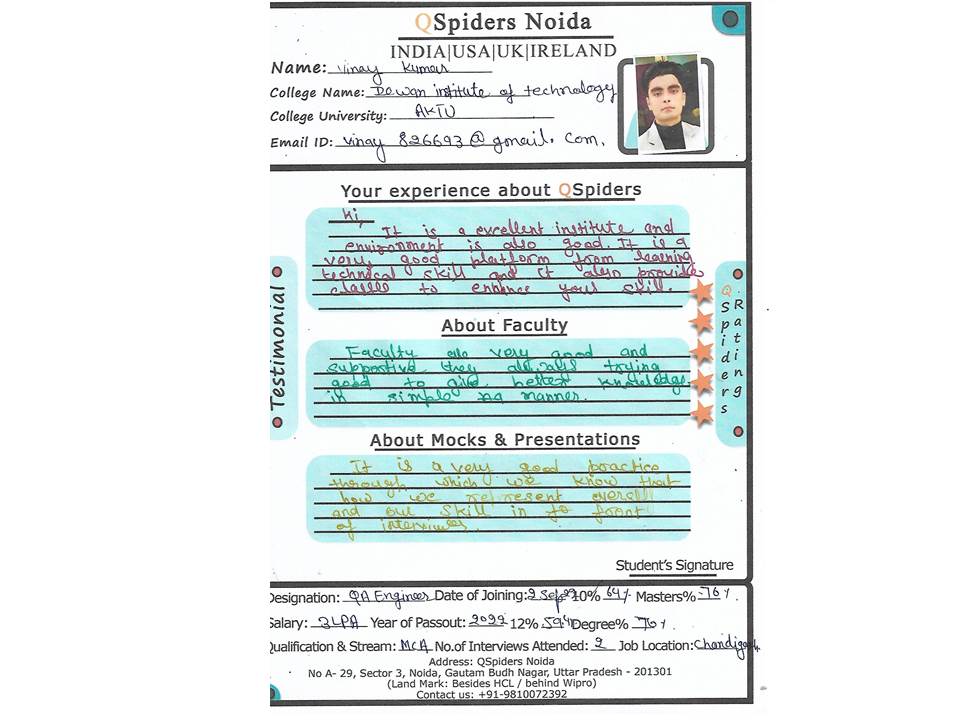 QSpiders Noida
INDIA|USA|UK|IRELAND
Name: Vinay Kumar
College Name: Dewan institute of technology
College University: AKTU
Email ID: vinay 826693@gmail. com.
Your experience about QSpiders
Hi,
It is a excellent institute and
environment is also good. It is a
very good platform from learning
technical skill and it also provide
classes to enhance your skill.
About Faculty
Faculty are very good and
supportive they always trying
good to give better knowledge
in simple manner.
About Mocks & Presentations
It is a very good practice
through which we know that
how we represent overall
and our skill in to front
of interviews.
Testimonial
QSpiders
Ratings
Student's Signature
Designation: QA Engineer Date of Joining: 2 Sep 10% 64% Masters% 76%
Salary: 3LPA Year of Passout: 2022 12% 59% Degree% 76%
Qualification & Stream: MCA No.of Interviews Attended: 2 Job Location: Chandigarh
Address: QSpiders Noida
No A- 29, Sector 3, Noida, Gautam Budh Nagar, Uttar Pradesh - 201301
(Land Mark: Besides HCL / behind Wipro)
Contact us: +91-9810072392